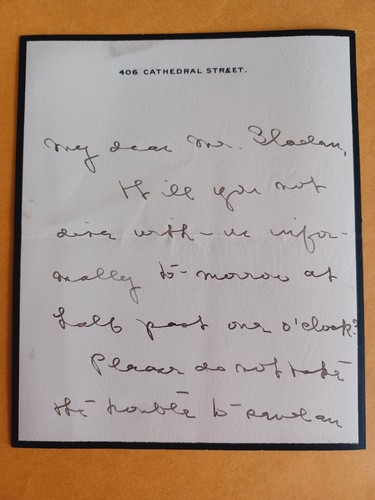 406 CATHEDRAL STREET.
My dear Mr. Gladan,
Will you not
dine with us infor-
mally to-morrow at
half past one o'clock?
Please do not take
the trouble to send an